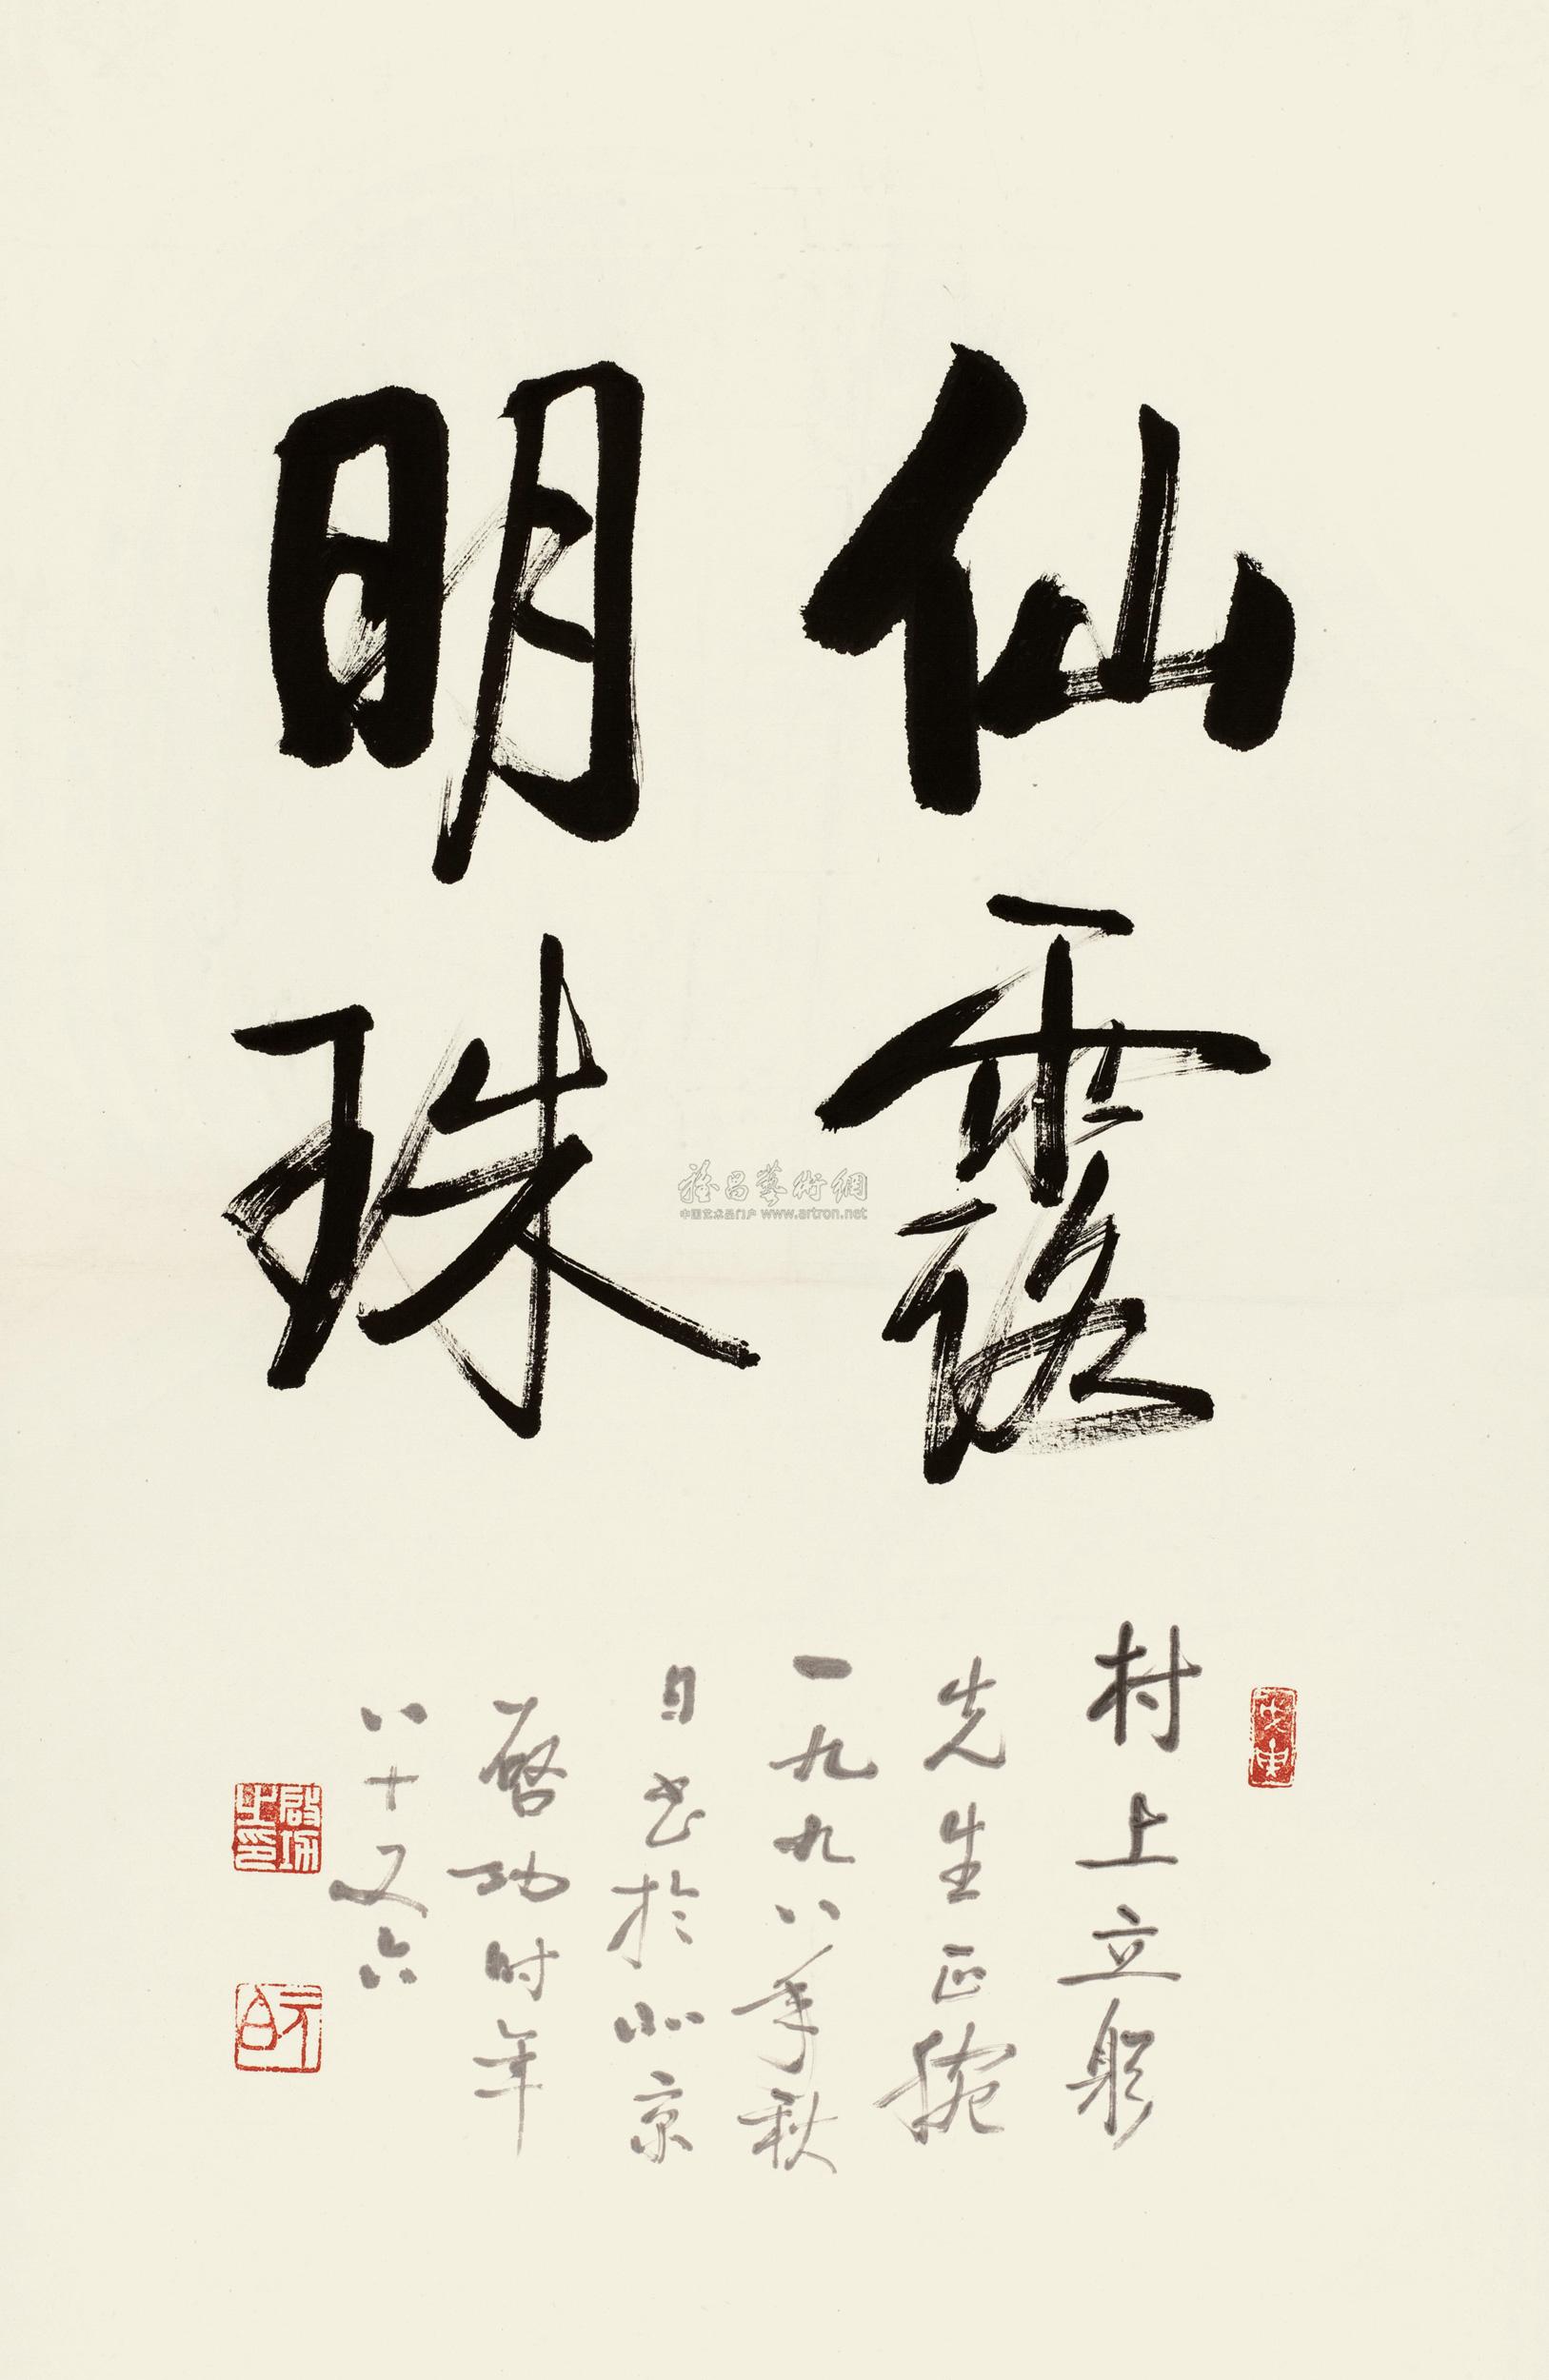 仙露
明珠
村上立躬
先生正腕
一九九八年秋
日书於北京
启功时年
八十又六
启功之印
元白
雅昌藝術網
中国艺术品门户 www.artron.net